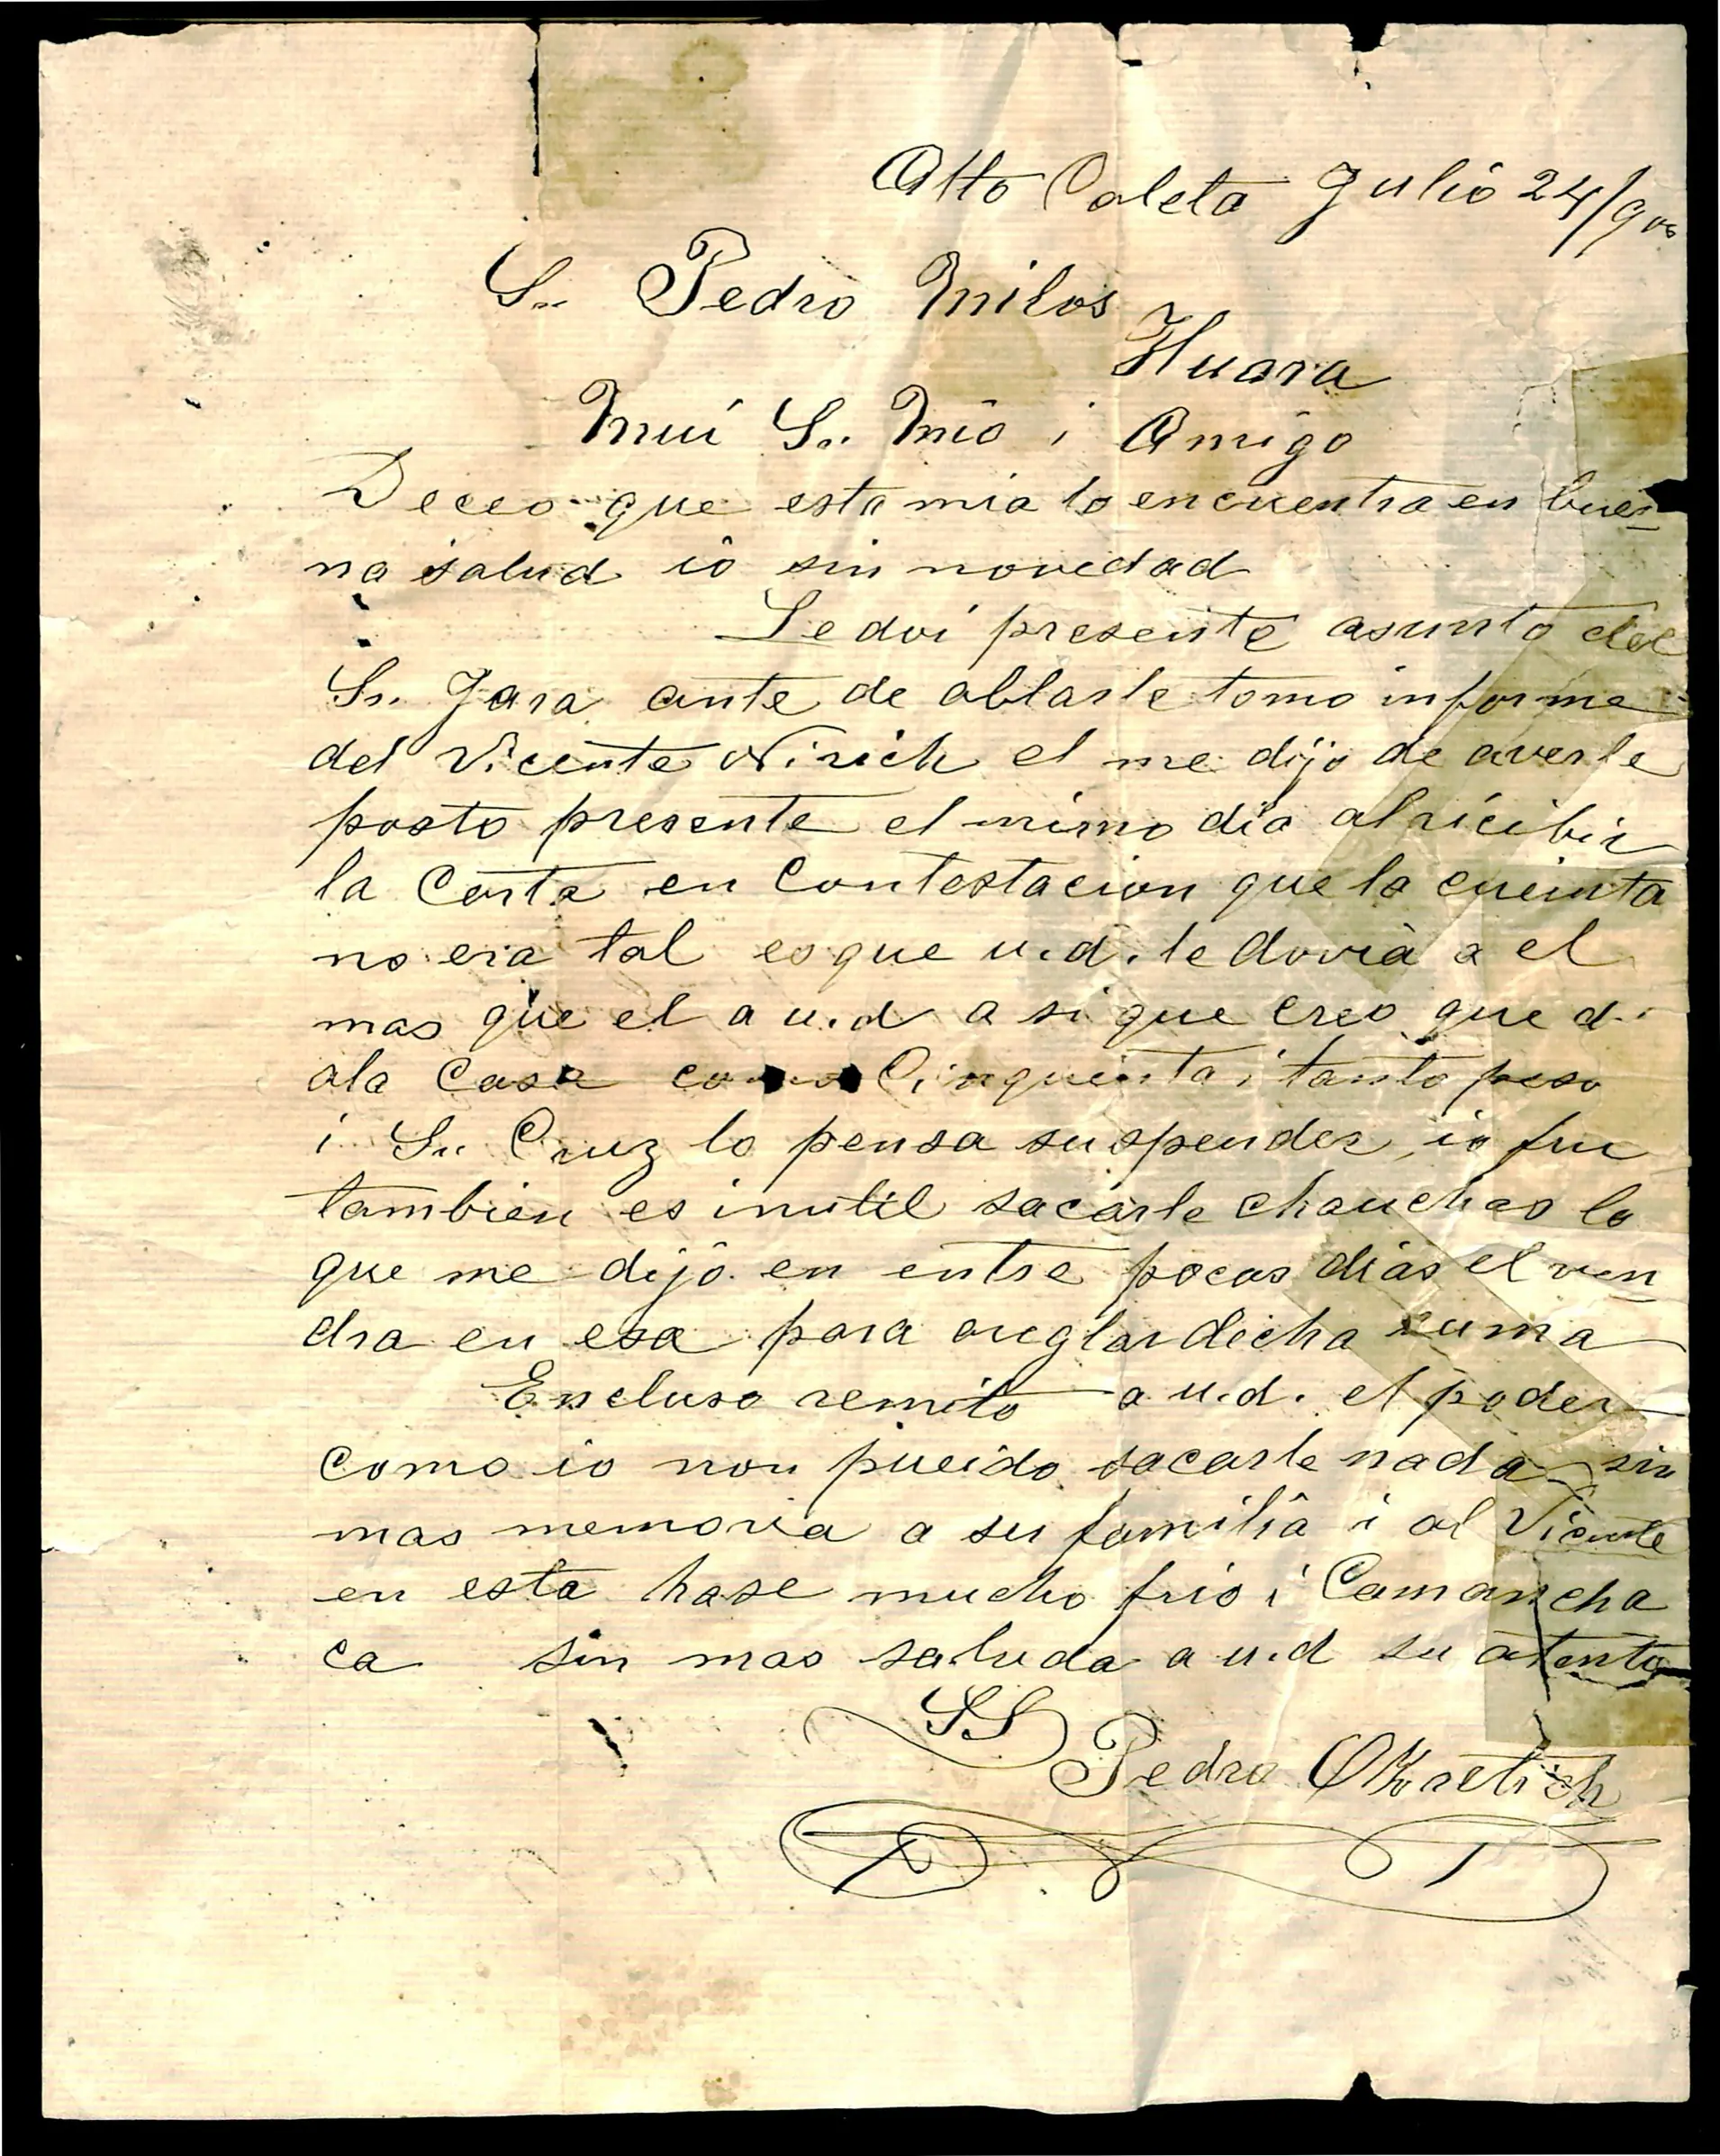 Alto Caleta Julio 24/900
Sr. Pedro Milos
Huara
Mui Sr. Mio i Amigo
Deceo que esta mia lo encuentra en bue-
na salud io sin novedad
Le doi presente asunto del
Sr. Jara ante de ablarle tomo informe
del Vicente el me dijo de averle
posto presente el mimo dia al ricibir
la Carta en Contestacion que la cueinta
no era tal es que u.d. le dovia a el
mas que el a u.d a si que creo que d
a la Casa como Cinquenta i tanto peso
i Sr. Cruz lo pensa suspender io fui
tambien es inutil sacarle chauchas lo
que me dijo en entre pocas dias el ven
dra en esa para areglar dicha suma
Encluso remito a u.d. el poder
como io non pueido sacarle nada sin
mas memoria a su familia i al Vicente
en esta hase mucho frio i Camancha
ca sin mas saluda a u.d su atento
SS
Pedro